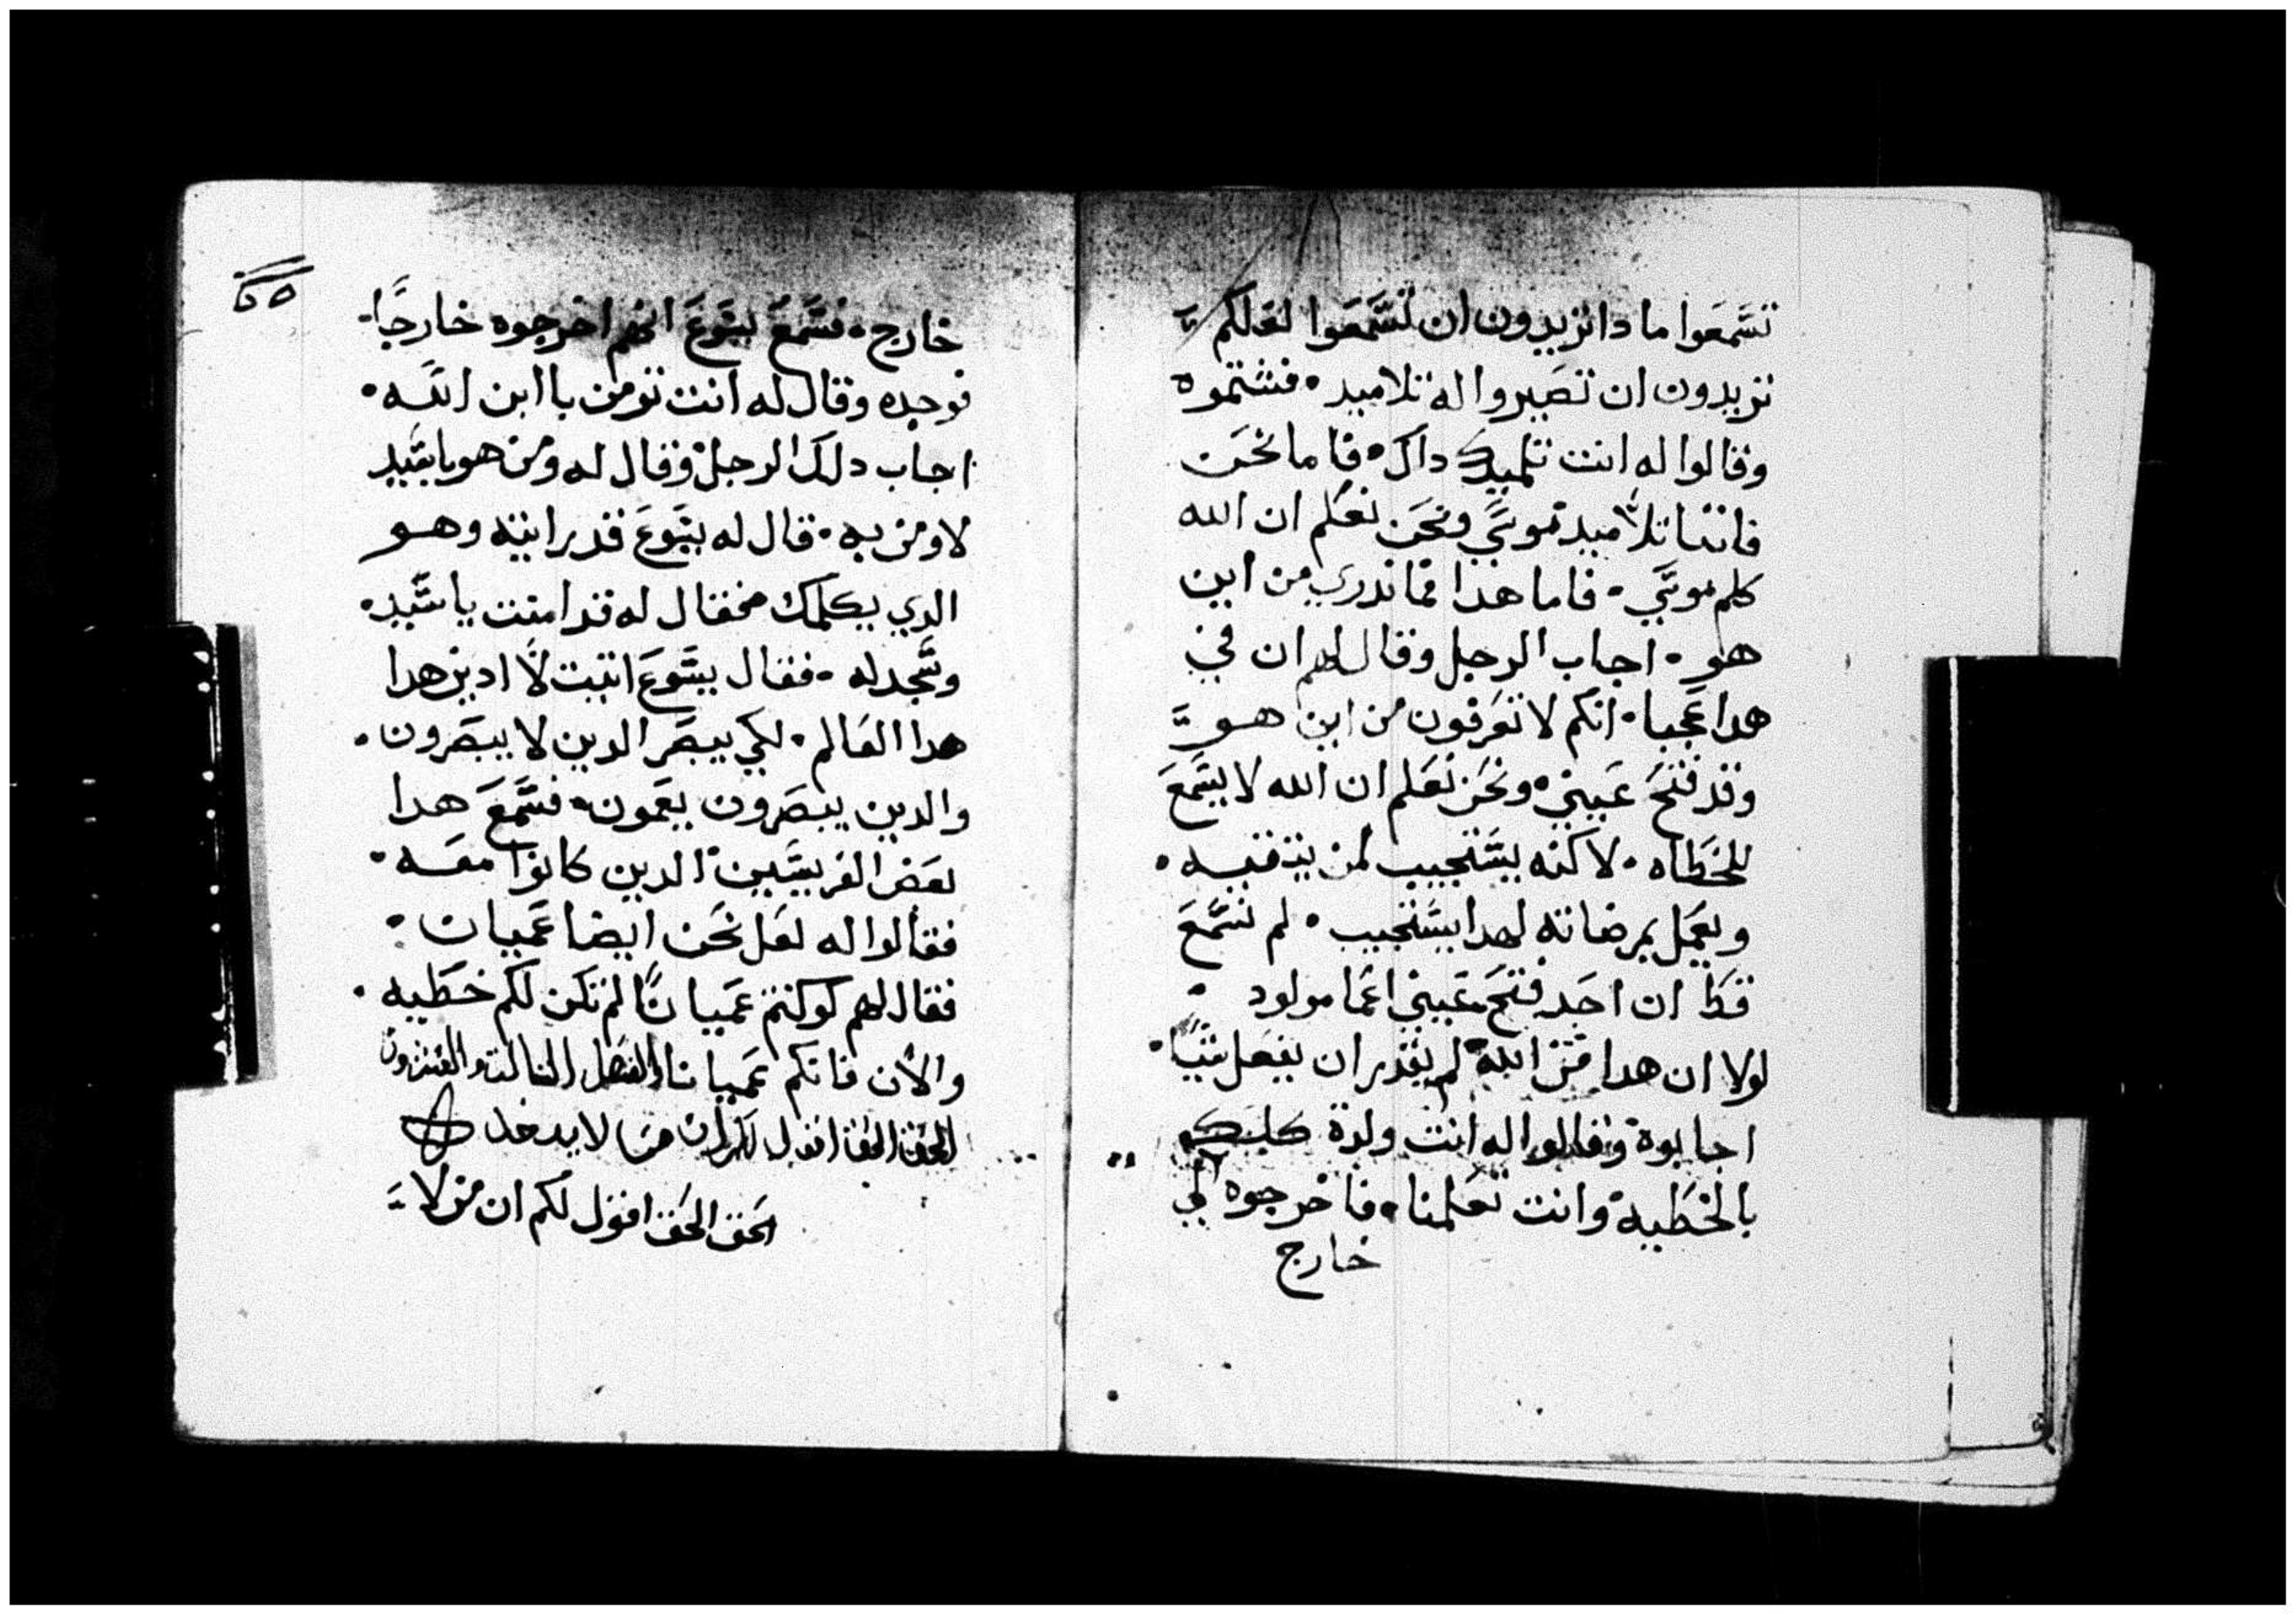 تسمعوا ما دا تريدون ان تسمعوا لعلكم
تريدون ان تصيروا له تلاميد • فشتموه
وقالوا له انت تلميد داك • فاما نحن
فاننا تلاميد موسي ونحن نعلم ان الله
كلم موسي • فاما هدا فما ندري من اين
هو • اجاب الرجل وقال لهم ان في
هدا عجبا • انكم لا تعرفون من اين هو
وقد فتح عيني • ونحن نعلم ان الله لا يسمع
للخطاه • لاكنه يستجيب لمن يتقيه •
ويعمل بمرضاته لهدا يستجيب • لم نسمع
قط ان احد فتح عيني اعما مولود •
لولا ان هدا من الله لم يقدر ان يفعل شيًا •
اجابوه وقالوا له انت ولدة كلك
بالخطيه وانت تعلمنا • فاخرجوه الي
خارج
خارج • فسمع يسوع انهم اخرجوه خارجًا •
فوجده وقال له انت تومن باابن الله •
اجاب دلك الرجل وقال له ومن هو ياسيد
لاومن به • قال له يسوع قد رايته وهو
الدي يكلمك فقال له قد امنت ياسيد •
وسجد له • فقال يسوع اتيت لادين هدا
هدا العالم • لكي يبصر الدين لا يبصرون •
والدين يبصرون يعمون • فسمع هدا
بعض الفريسيين الدين كانوا معه •
فقالوا له لعل نحن ايضا عميان •
فقال لهم لو كنتم عميانًا لم تكن لكم خطيه •
والان فانكم عميانا الفصل الثالث والعشرون
الحق الحق اقول لكم ان من لا يدخل
الحق الحق اقول لكم ان من لا